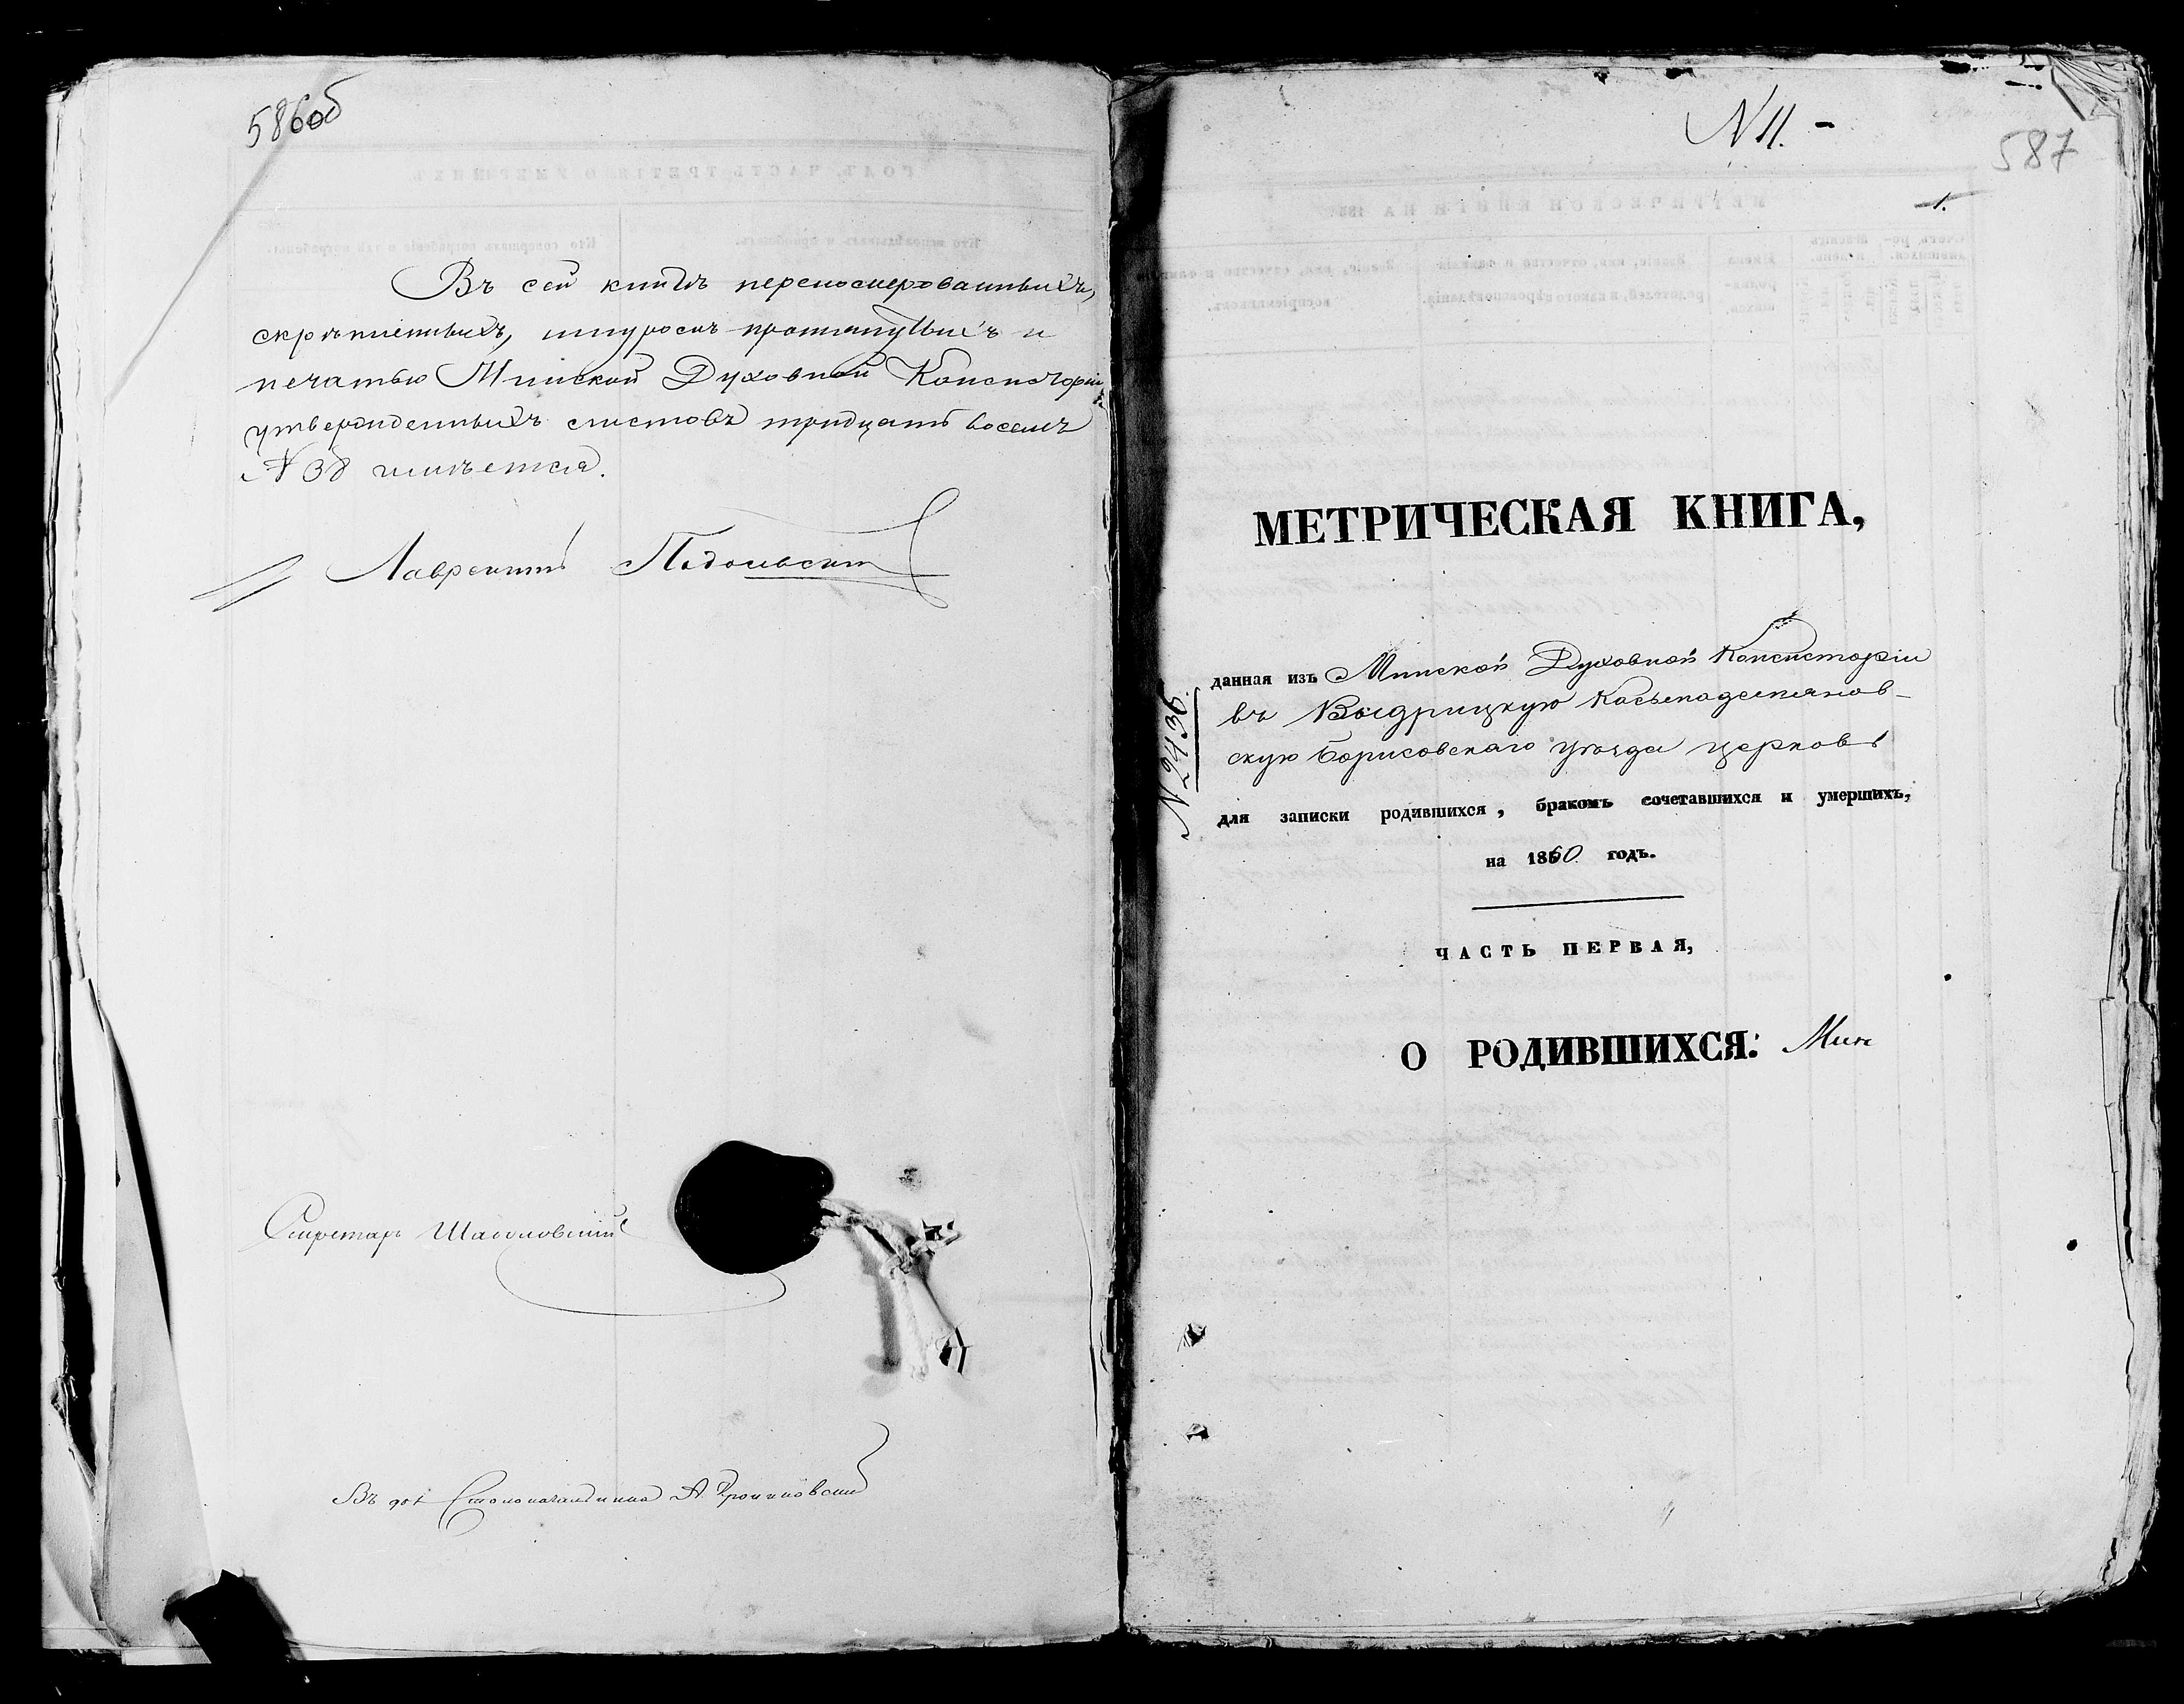 586об
Въ сей книгѣ перенумерованныхъ,
скрѣпленныхъ, шнуромъ протянутыхъ и
печатью Минской Духовной Консисторіи
утвержденныхъ листовъ тридцать восемь
№ 38 имѣется.
Лаврентій Подольскій
Секретарь
Въ дол. Столоначальника А.
N 11. -
587
1.
МЕТРИЧЕСКАЯ КНИГА,
N 2436.
данная изъ Минской Духовной Консисторіи
въ Выдрицкую Косьмодемянов-
скую Борисовскаго уѣзда церковь
для записки родившихся, бракомъ сочетавшихся и умершихъ,
на 1860 годъ.
ЧАСТЬ ПЕРВАЯ,
О РОДИВШИХСЯ: Мин